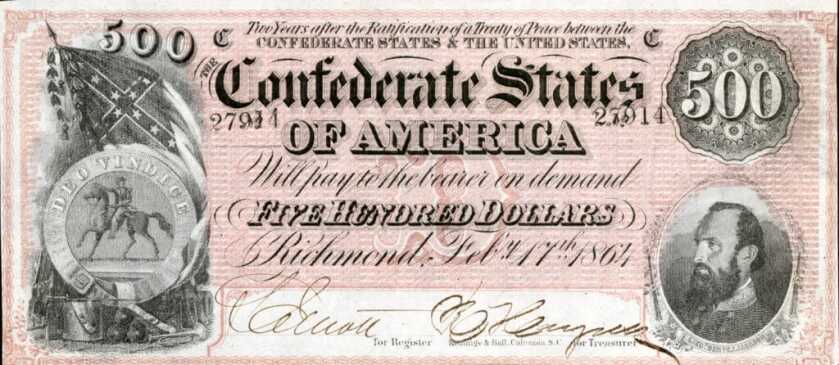 500
C
Two Years after the Ratification of a Treaty of Peace between the
C
CONFEDERATE STATES & THE UNITED STATES,
THE
Confederate States
500
27914
27914
OF AMERICA
Will pay to the bearer on demand
DEO VINDICE
FIVE HUNDRED DOLLARS
Richmond, Feby. 17th 1864
for Register
Keatinge & Ball, Columbia S.C.
for Treasurer